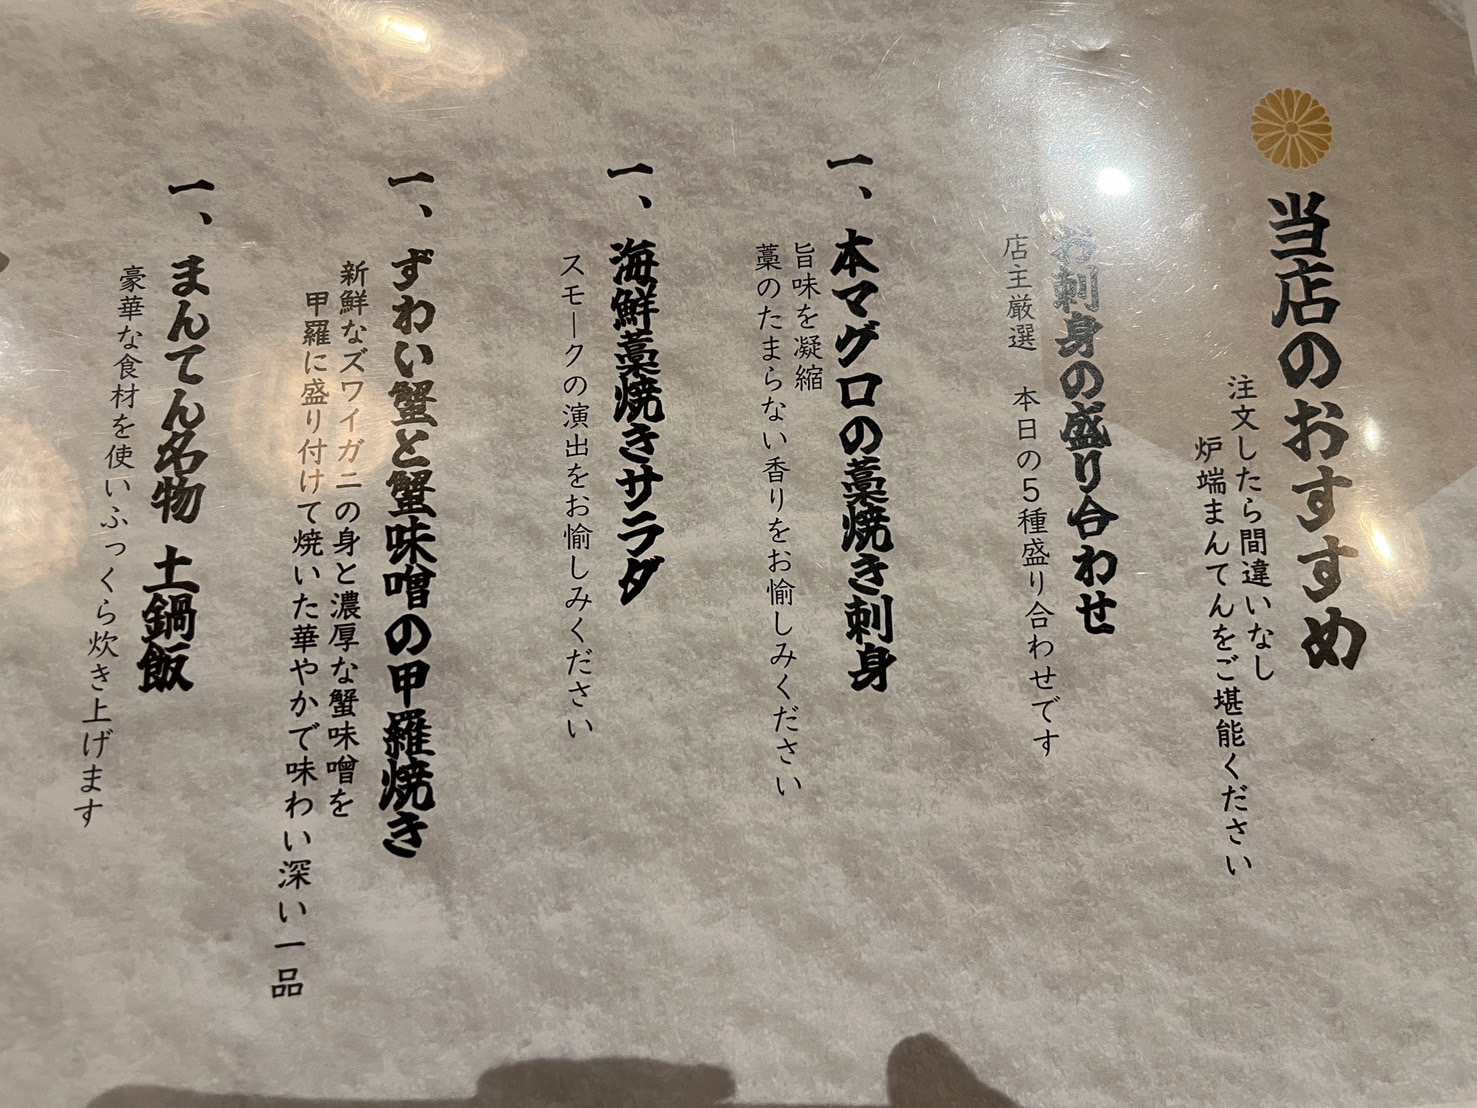 当店のおすすめ
注文したら間違いなし
炉端まんてんをご堪能ください
お刺身の盛り合わせ
店主厳選　本日の5種盛り合わせです
一、本マグロの藁焼き刺身
旨味を凝縮
藁のたまらない香りをお愉しみください
一、海鮮藁焼きサラダ
スモークの演出をお愉しみください
一、ずわい蟹と蟹味噌の甲羅焼き
新鮮なズワイガニの身と濃厚な蟹味噌を
甲羅に盛り付けて焼いた華やかで味わい深い一品
一、まんてん名物　土鍋飯
豪華な食材を使いふっくら炊き上げます